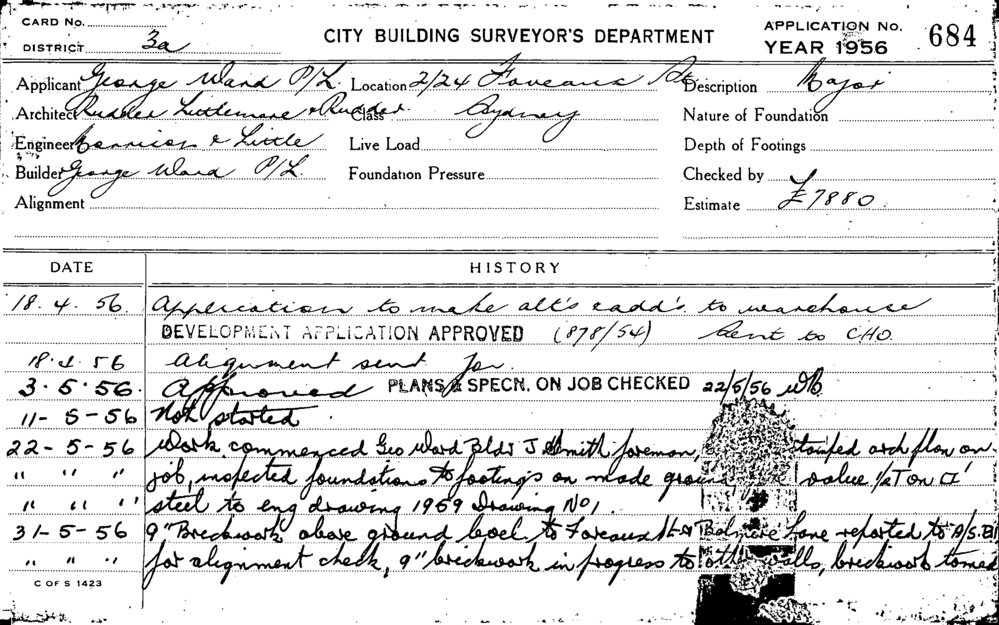 CARD No.
DISTRICT 3a
CITY BUILDING SURVEYOR'S DEPARTMENT
APPLICATION No. 684
YEAR 1956
Applicant George Ward P/L Location 2/24 Foveaux St Description Major
Architect Rudder Littlemore & Rudder Class Sydney Nature of Foundation
Engineer & Little Live Load Depth of Footings
Builder George Ward P/L. Foundation Pressure Checked by
Alignment Estimate £7880
DATE HISTORY
18. 4. 56. Application to make alt's & add's to warehouse
DEVELOPMENT APPLICATION APPROVED (878/54) Sent to CHO.
18.4.56 Alignment sent for
3.5.56. Approved PLANS & SPECN. ON JOB CHECKED 22/5/56
11-5-56 Not started
22-5-56 Work commenced Geo Ward Bldr J Smith foreman, tamped arch plan on
" " " job, inspected foundations to footings on made value 1/2T on □'
" " " steel to eng drawing 1959 Drawing No 1.
31-5-56 9" Brickwork above ground level to Foveaux St & have reported to A/S.B
" " " for alignment check, 9" brickwork in progress to other walls, brickwork
C OF S 1423